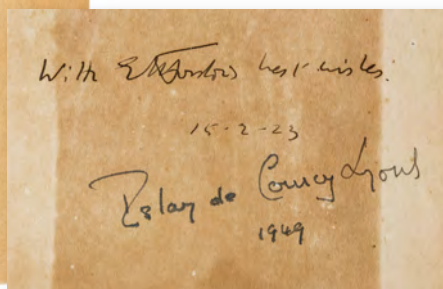 With EMForster's best wishes.
15-2-23
Islay de Courcy Lyons
1949